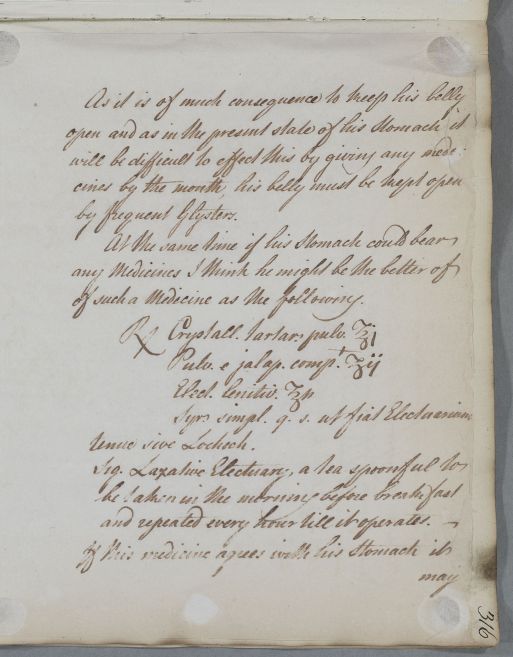 As it is of much consequence to keep his belly
open and as in the present state of his Stomach it
will be difficult to effect this by giving any medi-
cines by the mouth, his belly must be kept open
by frequent Glysters.
At the same time if his Stomach could bear
any Medicines I think he might be the better of
of such a Medicine as the following.
℞ Crystall. tartar. pulv. ʒj
Pulv. e jalap. comp.t ʒij
Elect. lenitiv. ʒ
Syr. simpl. q. s. ut fiat Electuarium
tenue sive Lochoch.
Sig. Laxative Electuary, a tea spoonful to
be taken in the morning before breakfast
and repeated every hour till it operates. —
If this medicine agrees with his Stomach it
may
316